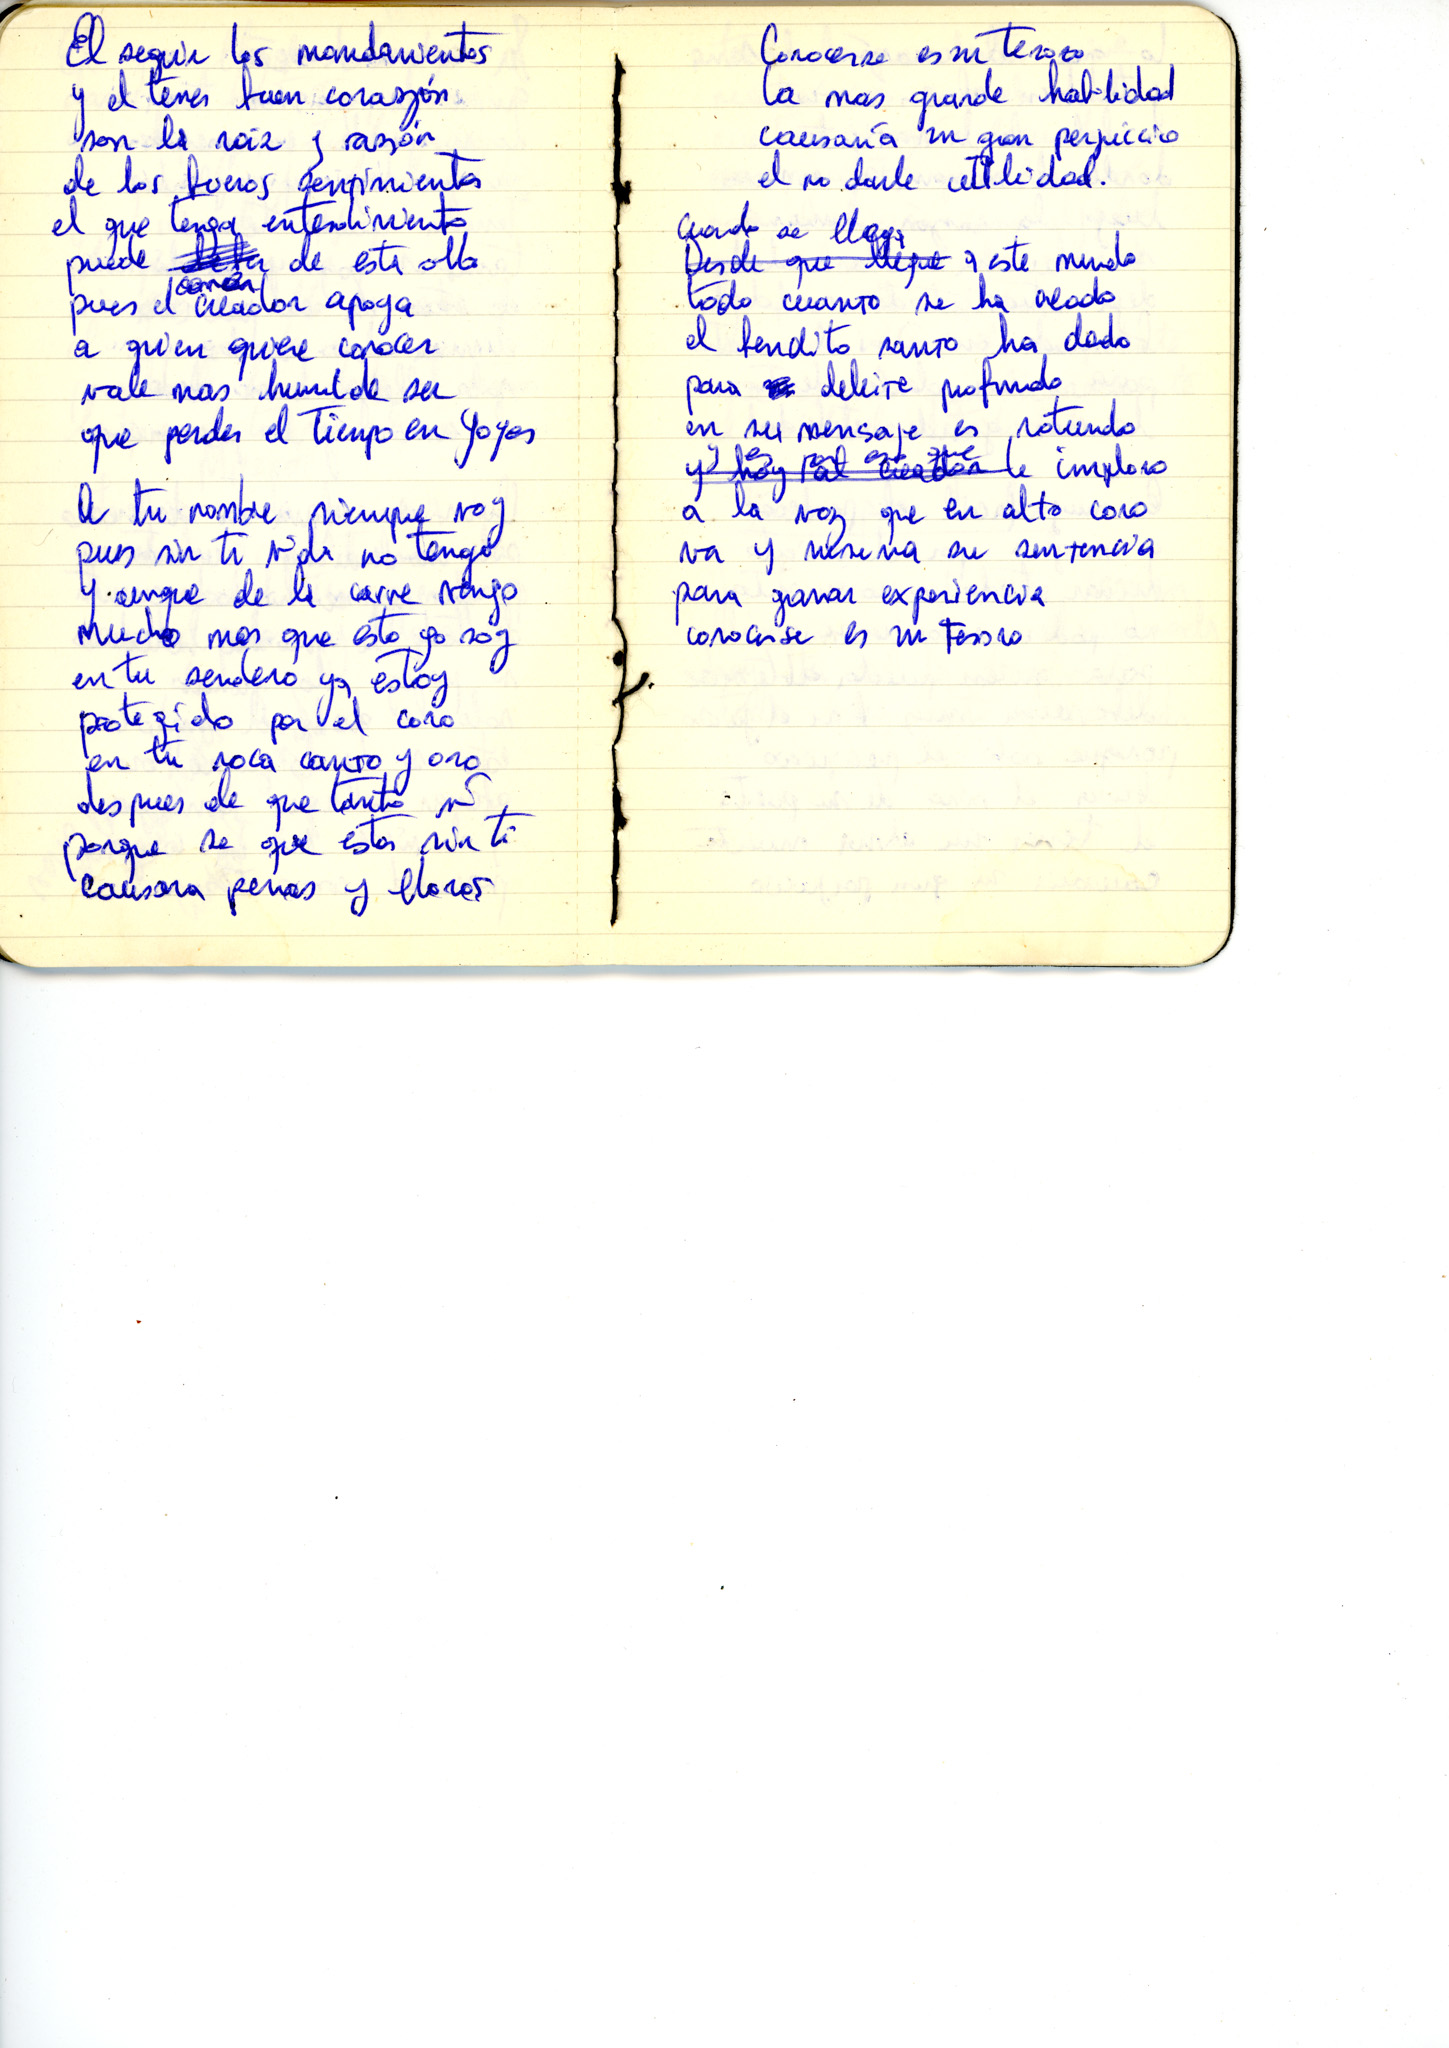 El seguir los mandamientos
y el tener buen corazón
son la raiz y razón
de los buenos sentimientos
el que tenga entendimiento
puede comer de esta olla
pues el creador apoya
a quien quiere conocer
vale mas humilde ser
que perder el tiempo en yoyos
A tu nombre siempre voy
pues sin ti vida no tengo
y aunque de la carne vengo
mucho mas que esto yo soy
en tu sendero ya estoy
protegido por el coro
en tu roca canto y oro
despues de que tanto vi
porque se que estar sin ti
causara penas y lloros
Conocerse es un tesoro
la mas grande habilidad
causaría un gran perjuicio
el no darle utilidad.
cuando se llega
Desde que llegue a este mundo
todo cuanto se ha creado
el bendito santo ha dado
para deleite profundo
en su mensaje es rotundo
y es por eso que
y hoy al creador le imploro
a la voz que en alto coro
va y reserva su sentencia
para ganar experiencia
conocerse es un tesoro